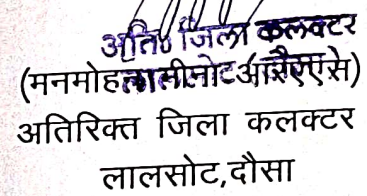 अति० जिला कलक्टर
(मनमोहन मीना आरएएस)
अतिरिक्त जिला कलक्टर
लालसोट,दौसा